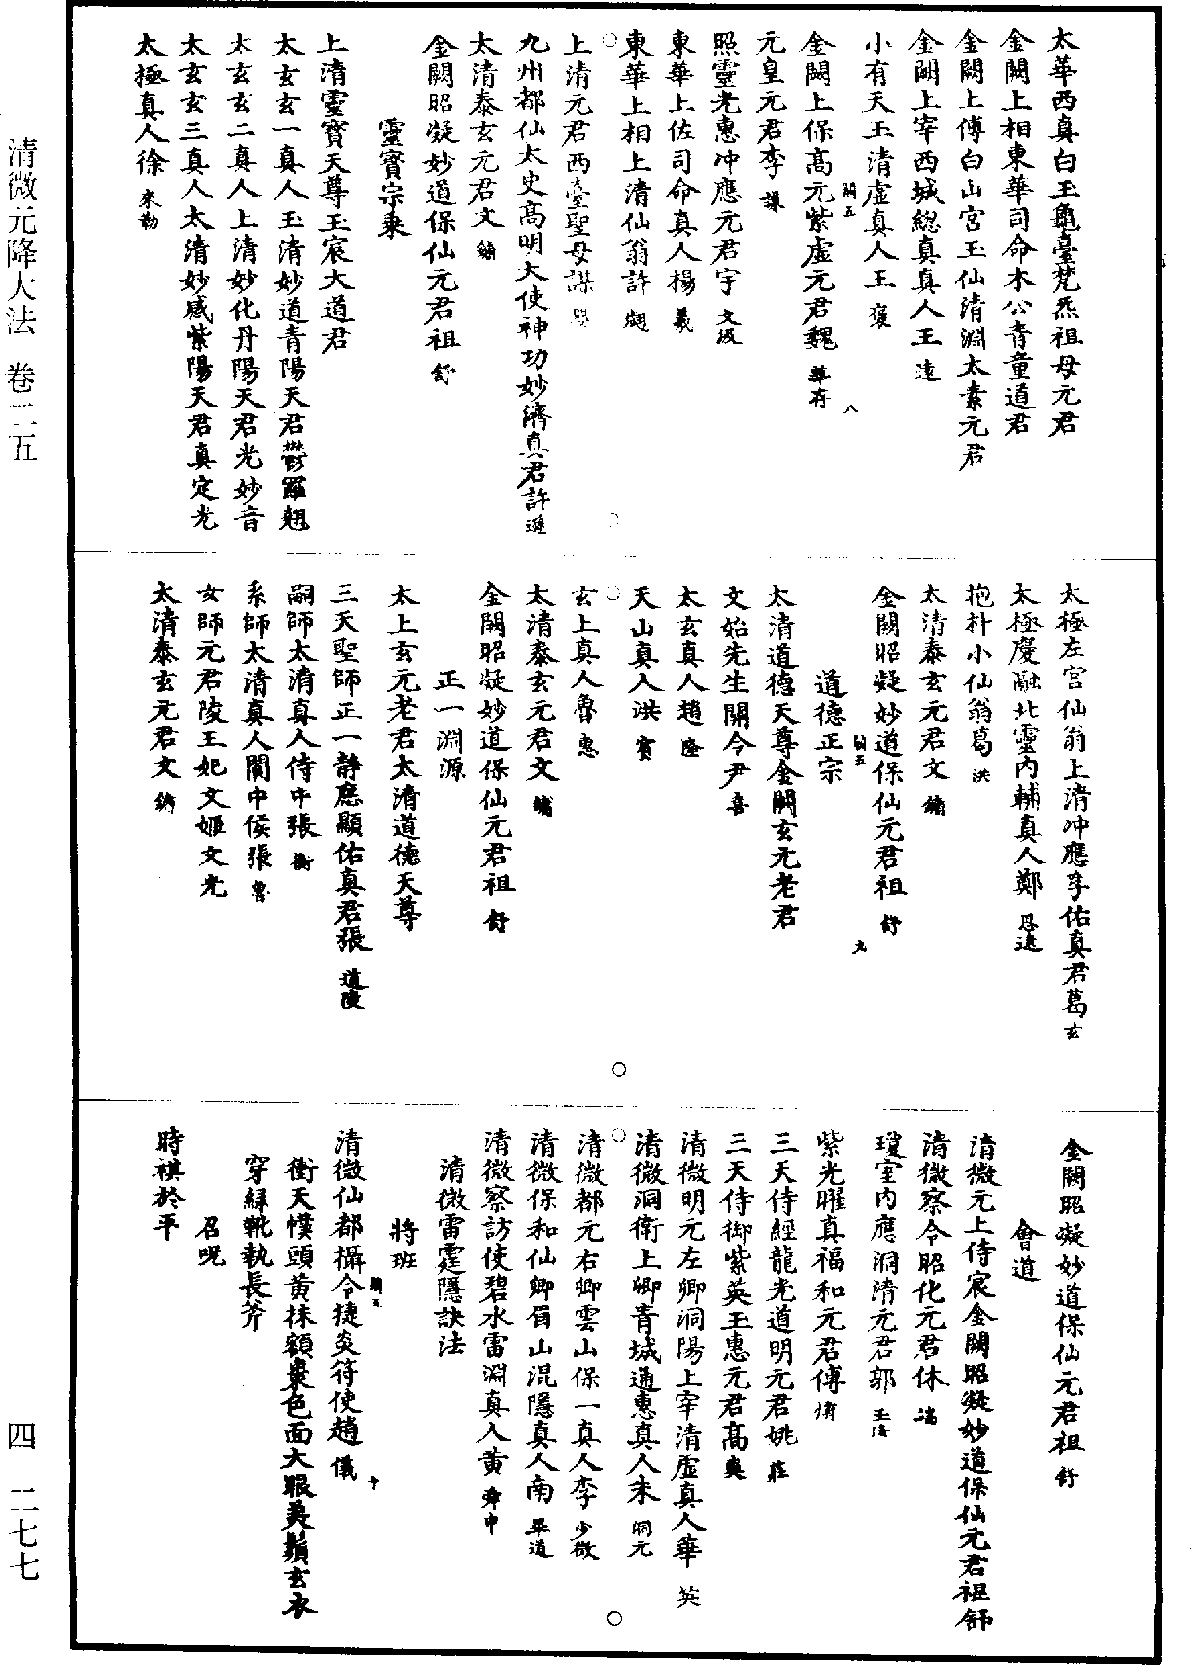 太華西真白玉龜臺梵炁祖母元君
金闕上相東華司命木公青童道君
金闕上傅白山宮玉仙清淵太素元君
金闕上宰西城總真真人王遠
小有天王清虛真人王褒
闕五
八
金闕上保高元紫虛元君魏華存
元皇元君李謙
照靈光惠冲應元君宇文汲
東華上佐司命真人楊羲
東華上相上清仙翁許翽
上清元君西臺聖母諶嬰
九州都仙太史高明大使神功妙濟真君許遜
太清泰玄元君文
金闕昭凝妙道保仙元君祖舒
靈寶宗乘
上清靈寶天尊玉宸大道君
太玄玄一真人玉清妙道青陽天君鬱羅翹
太玄玄二真人上清妙化丹陽天君光妙音
太玄玄三真人太清妙感紫陽天君真定光
太極真人徐來勒
太極左宮仙翁上清冲應孚佑真君葛玄
太極慶融北靈內輔真人鄭思遠
抱朴小仙翁葛洪
太清泰玄元君文
金闕昭凝妙道保仙元君祖舒
闕五
九
道德正宗
太清道德天尊金闕玄元老君
文始先生關令尹喜
太玄真人趙隆
天山真人洪賓
玄上真人魯惠
太清泰玄元君文
金闕昭凝妙道保仙元君祖舒
正一淵源
太上玄元老君太清道德天尊
三天聖師正一靜應顯佑真君張道陵
嗣師太清真人侍中張衡
系師太清真人閬中侯張魯
女師元君陵王妃文姬文光
太清泰玄元君文
金闕昭凝妙道保仙元君祖舒
會道
清微元上侍宸金闕昭凝妙道保仙元君祖舒
清微察令昭化元君休端
瓊室內應洞清元君郭玉隆
紫光曜真福和元君傅
三天侍經龍光道明元君姚莊
三天侍御紫英玉惠元君高奭
清微明元左卿洞陽上宰清虛真人華英
清微洞衛上卿青城通惠真人朱洞元
清微都元右卿雲山保一真人李少微
清微保和仙卿眉山混隱真人南畢道
清微察訪使碧水雷淵真人黃舜申
清微雷霆隱訣法
將班
闕五
十
清微仙都攝令捷炎符使趙儀
衝天幞頭黃抹額棗色面大眼美鬚玄衣
穿綠靴執長斧
召咒
時祺於平
清微元降大法　卷二五
四　二七七